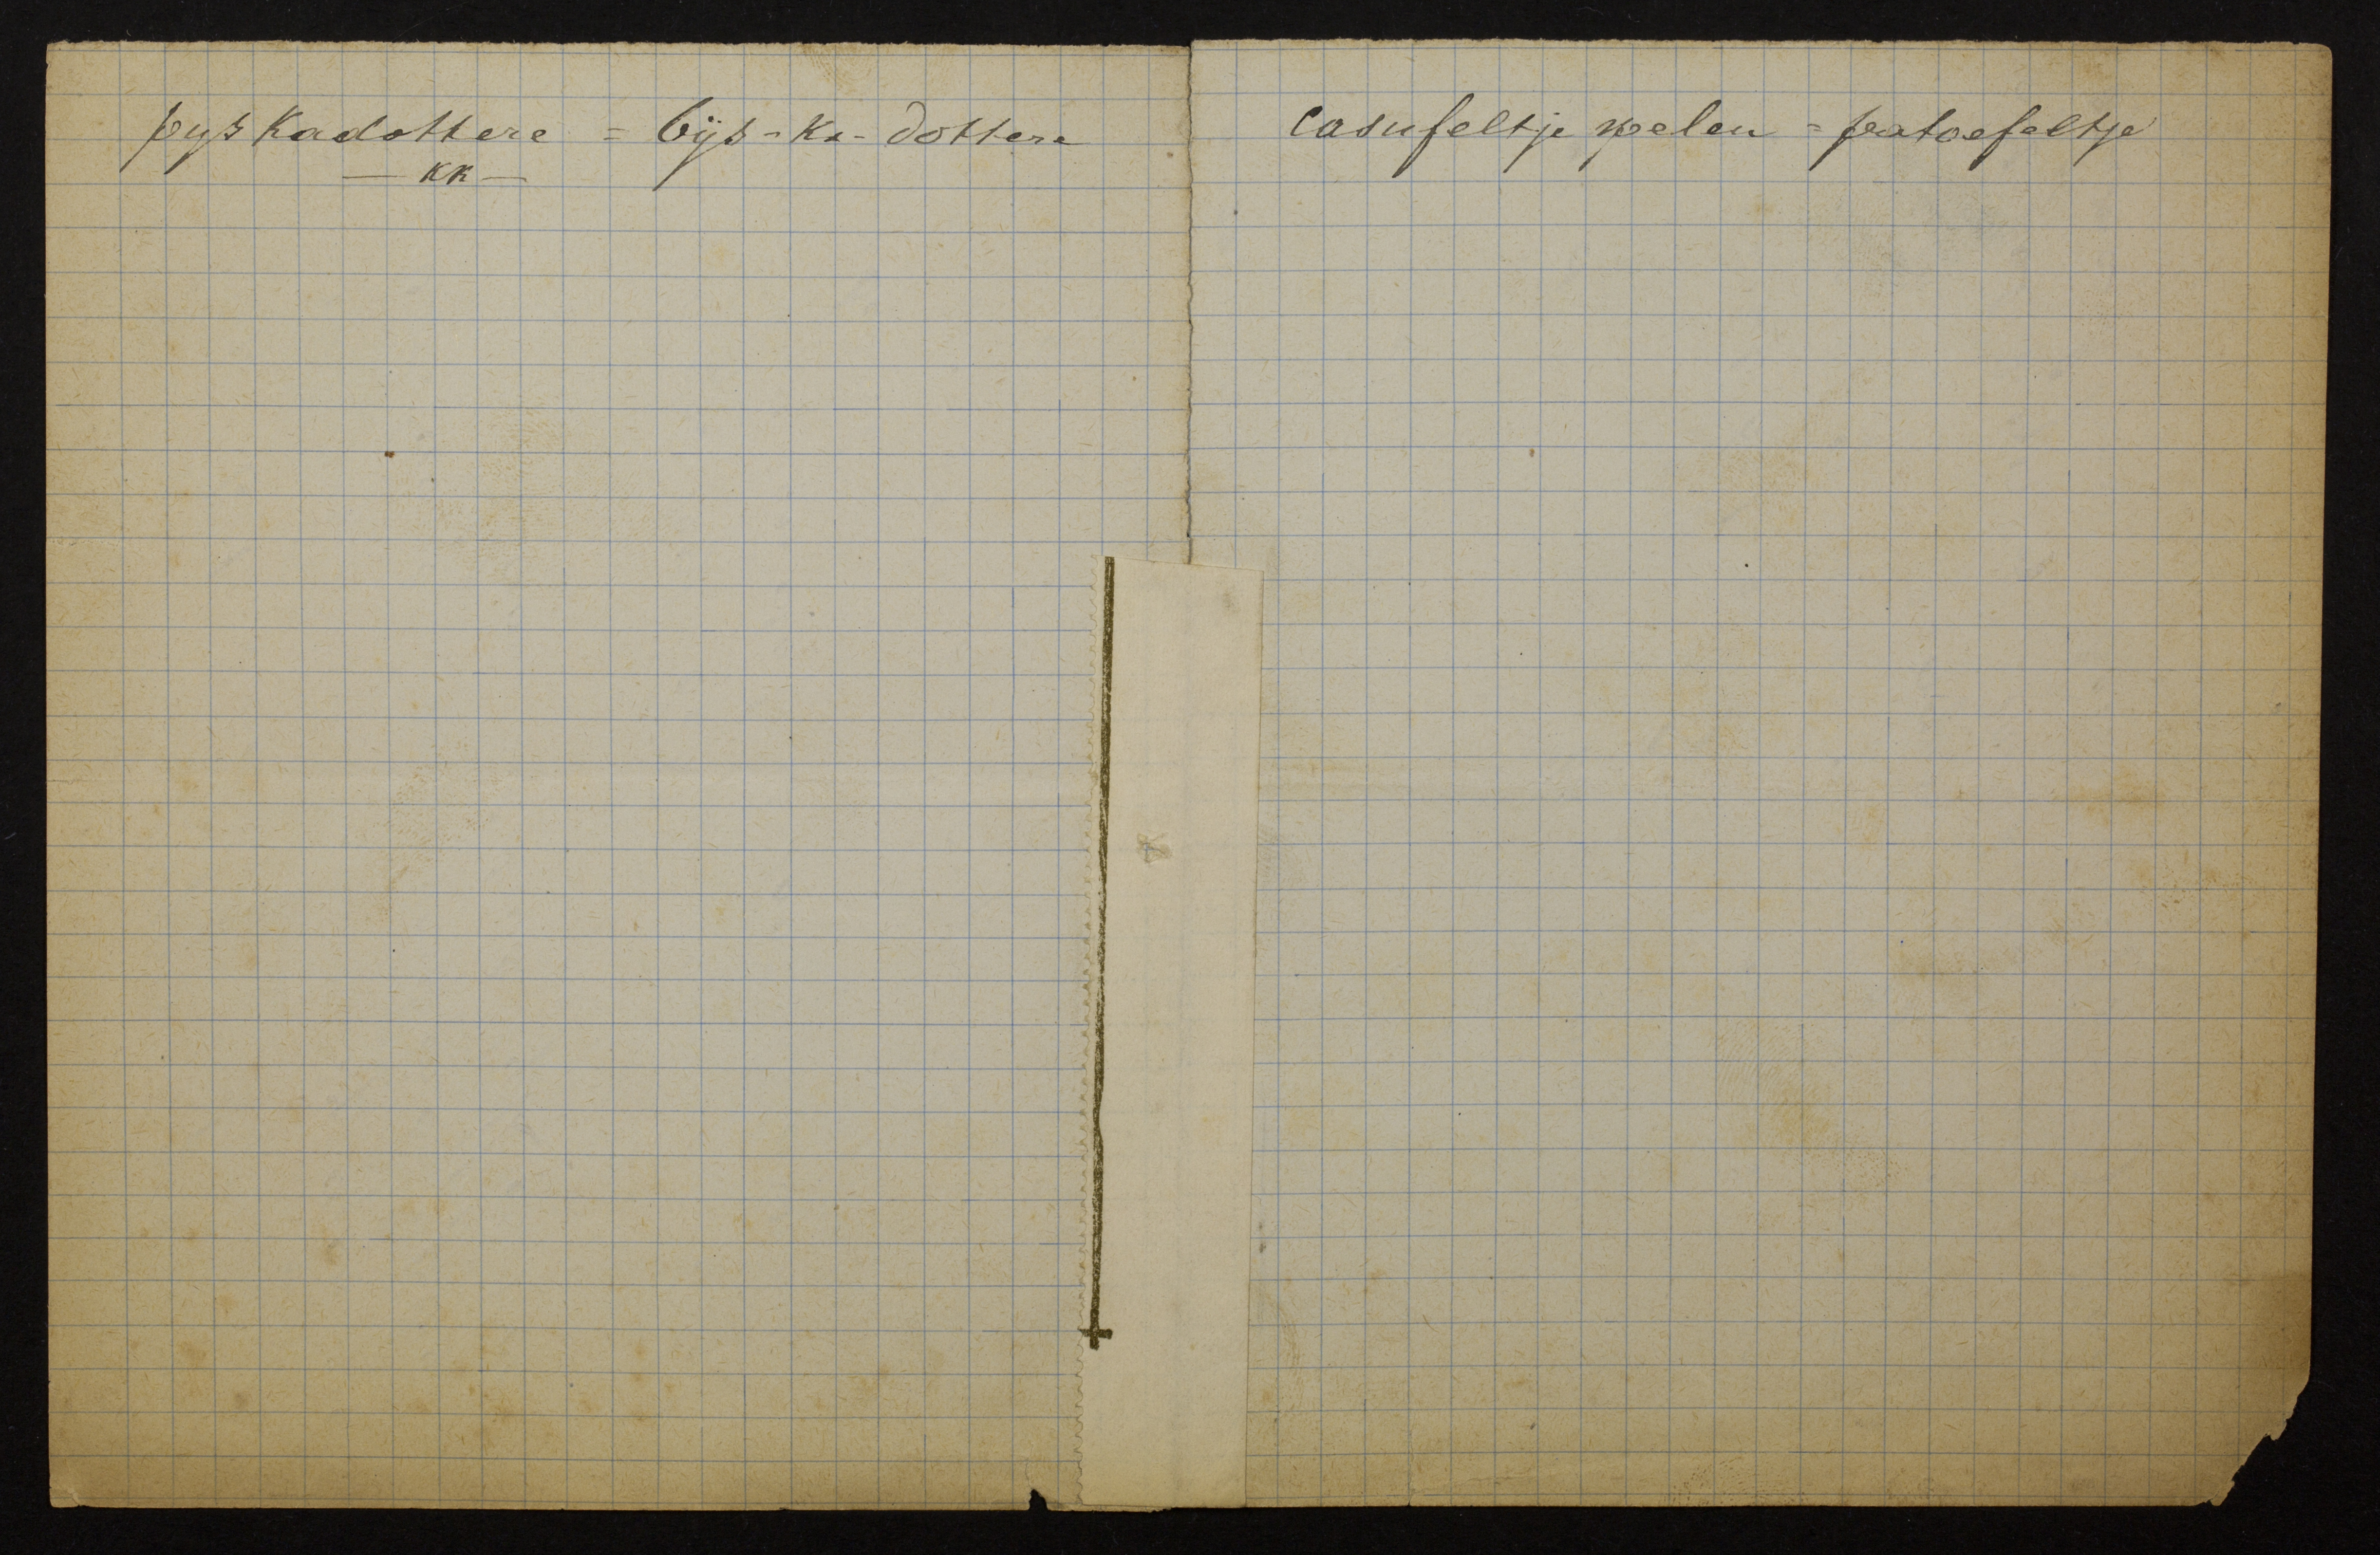 pys Kadottere = bÿs-Ka-dottere
— KK —
casufeltje spelen = patoefeltje